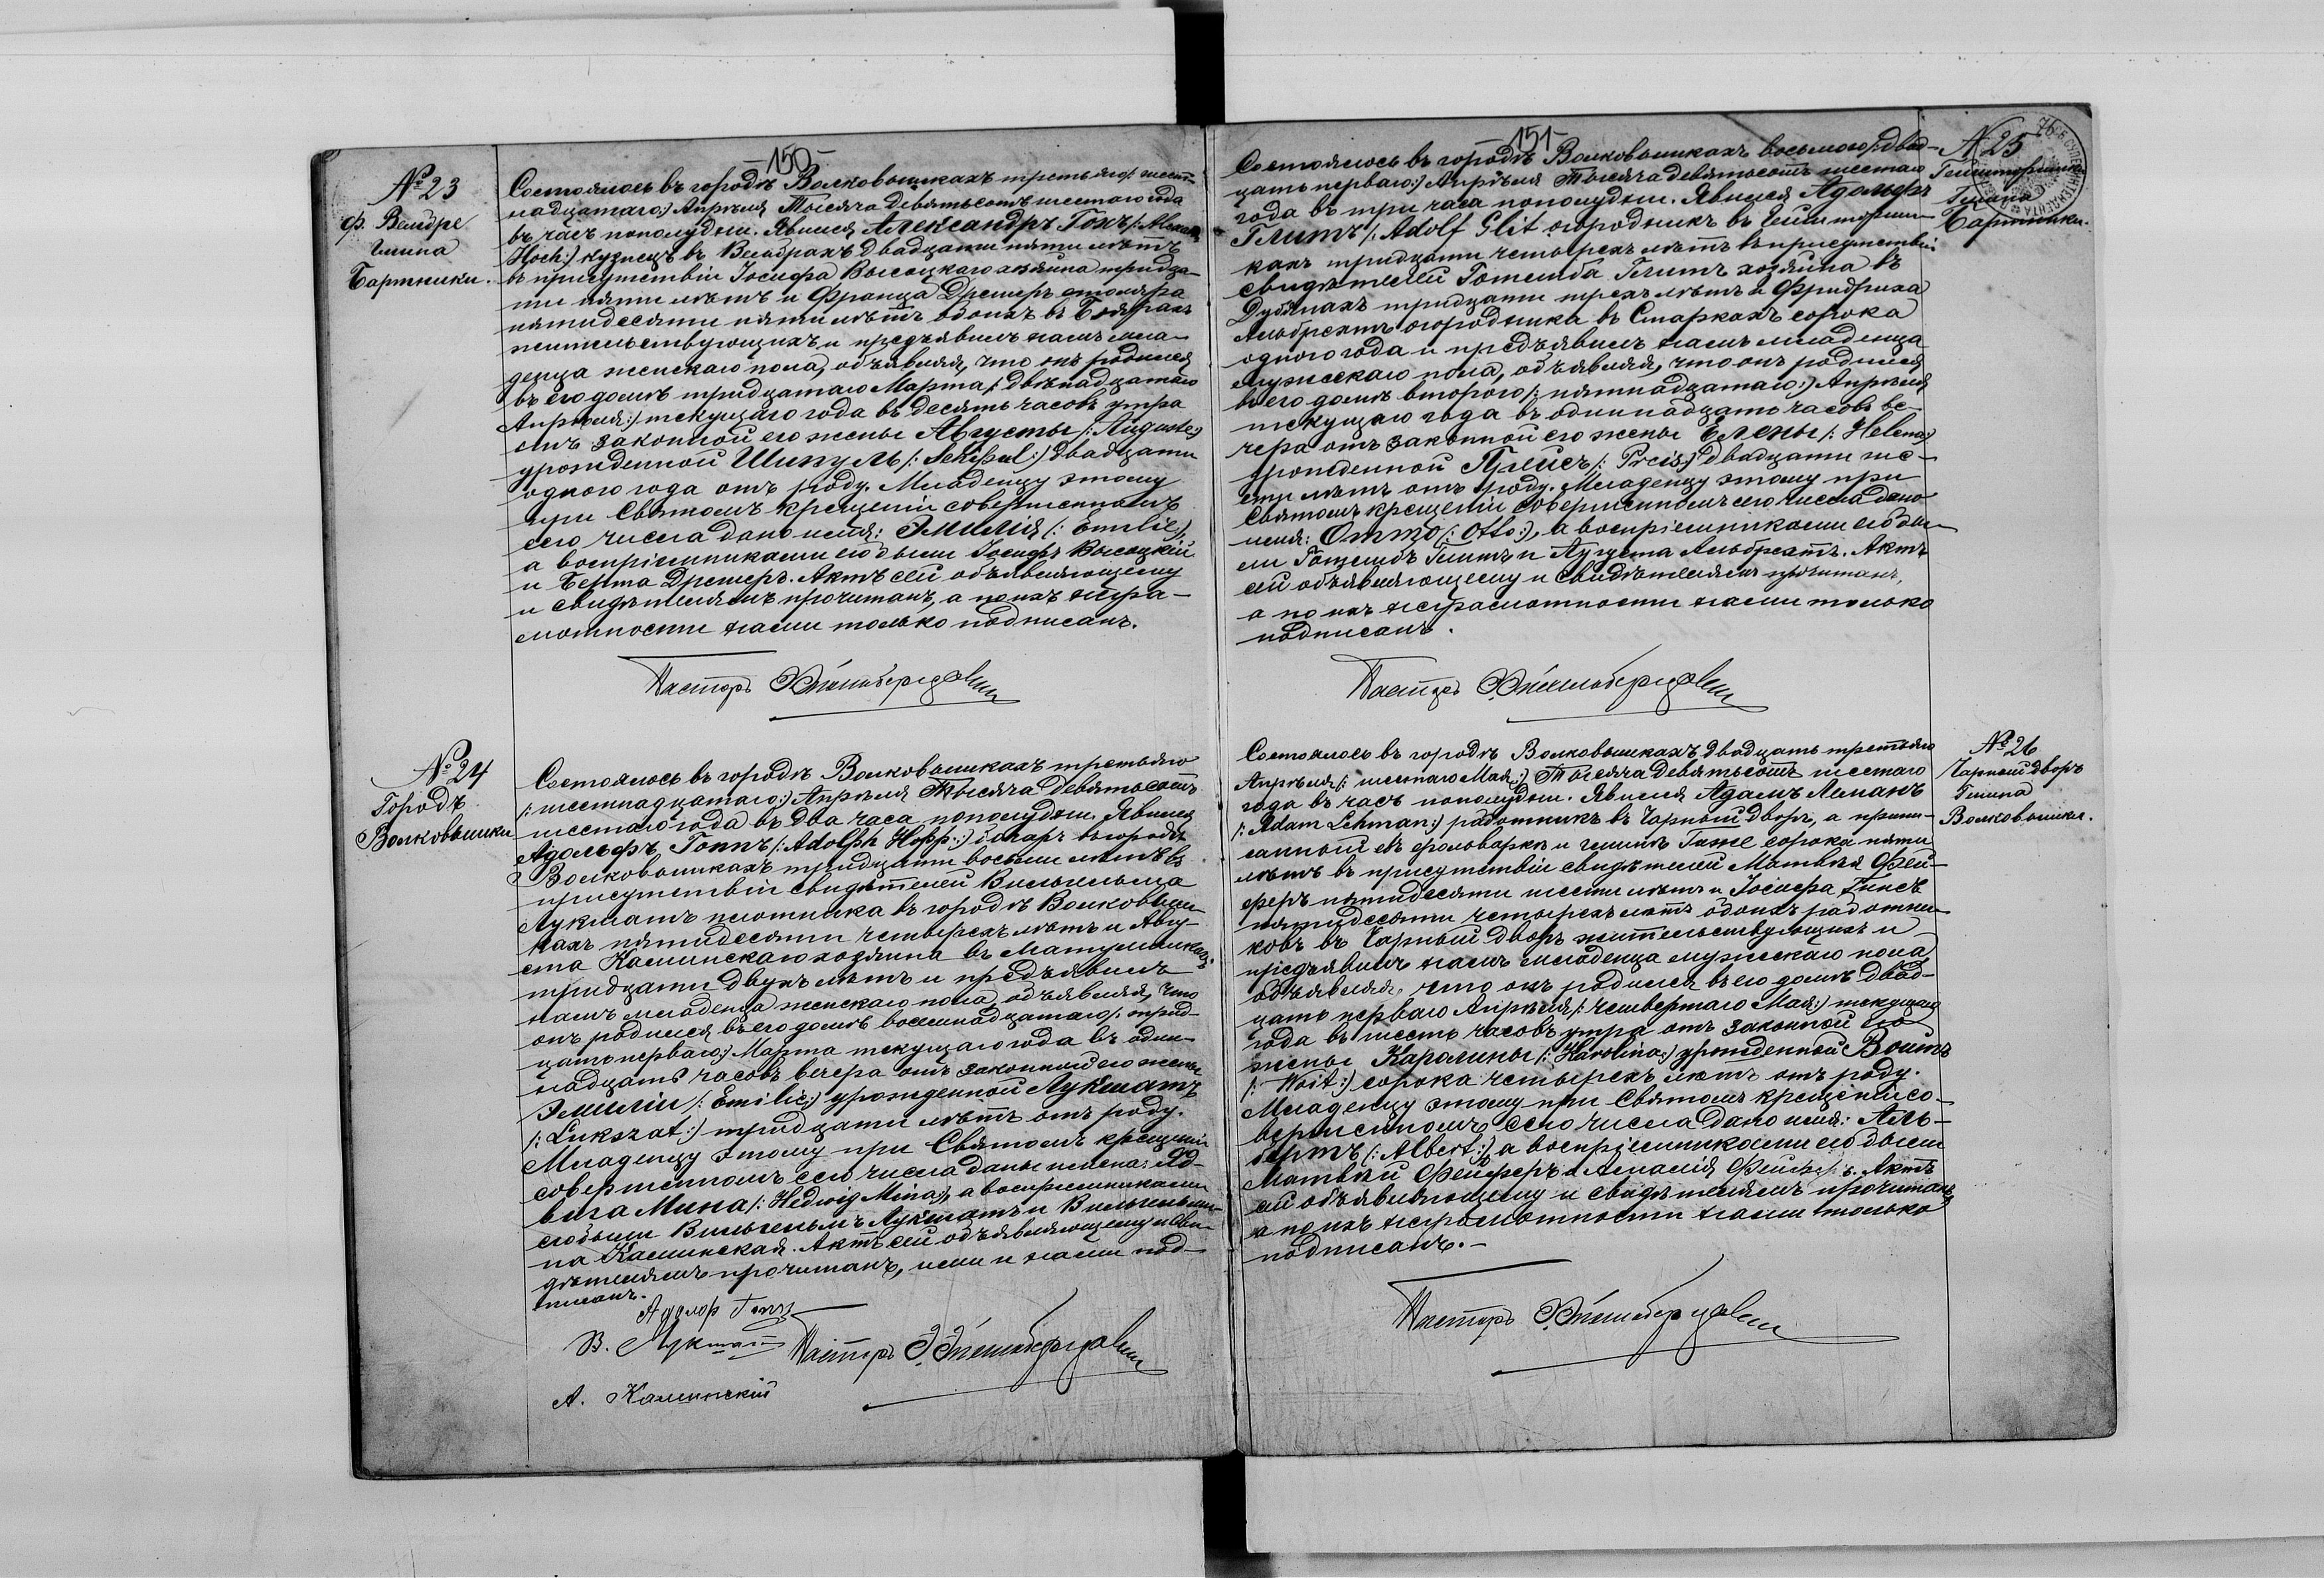 -150-
№ 23
ф. Вейдре
гмина
Бартники.
Состоялось въ городѣ Волковышкахъ третьяго /: шест-
надцатаго:/ Апрѣля Тысяча девятьсотъ шестаго года
въ часъ пополудни. Явился Александръ Гохъ /: Alexan.
Hoch:/ кузнецъ въ Вейдрахъ двадцати пяти лѣтъ
въ присутствіи Іосифа Высоцкаго хозяина тридца-
ти пяти лѣтъ и Франца Дрешеръ столяра
пятидесяти пяти лѣтъ обоихъ въ
жительствующихъ и предъявилъ намъ мла-
денца женскаго пола, объявляя, что онъ родился
въ его домѣ тридцатаго Марта /: двѣнадцатаго
Апрѣля:/ текущаго года въ десять часовъ утра
отъ законной его жены Августы /: Auguste:/
урожденной Шипуль /: Schipul:/ двадцати
одного года отъ роду. Младенцу этому
при Святомъ крещеніи совершенномъ
сего числа дано имя: Эмилія /: Emilie:/,
а воспріемниками его были Іосифъ Высоцкій
и Берта Дрешеръ. Актъ сей объявляющему
и свидѣтелямъ прочитанъ, а по ихъ негра-
мотности нами только подписанъ.
Пасторъ
№ 24
Городъ
Волковышки
Состоялось въ городѣ Волковышкахъ третьяго
/: шестнадцатаго:/ Апрѣля Тысяча девятьсотъ
шестаго года въ два часа пополудни. Явился
Адольфъ Гоппъ /: Adolph Hopp:/ въ городѣ
Волковышкахъ тридцати восьми лѣтъ въ
присутствіи свидѣтелей Вильгельма
Лукшатъ плотника въ городѣ Волковыш-
кахъ пятидесяти четырехъ лѣтъ и Авгу-
ста Каминскаго хозяина въ
тридцати двухъ лѣтъ и предъявилъ
намъ младенца женскаго пола, объявляя, что
онъ родился въ его домѣ восемнадцатаго /: трид-
цать перваго:/ Марта текущаго года въ один-
надцать часовъ вечера отъ законной его жены
Эмиліи /: Emilie:/ урожденной Лукшатъ
/: Lukszat:/ тридцати лѣтъ отъ роду.
Младенцу этому при Святомъ крещеніи
совершенномъ сего числа даны имена: Ядвига
Мина /: Hedwig Mina:/, а воспріемниками
его были Вильгельмъ Лукшатъ и Вильгельми-
на Каминская. Актъ сей объявляющему и сви-
дѣтелямъ прочитанъ, ими и нами под-
писанъ.
Адолф Гопп
В. Лукшатъ Пасторъ
А. Каминскій
-151-
№ 25
Гмина
Бартники.
Состоялось въ городѣ Волковышкахъ восьмаго /: двад-
цать перваго:/ Апрѣля Тысяча девятьсотъ шестаго
года въ три часа пополудни. Явился Адольфъ
Глитъ /: Adolf Glit огородникъ въ
кахъ тридцати четырехъ лѣтъ въ присутствіи
свидѣтелей Готлиба Глитъ хозяина въ
Дубинахъ тридцати трехъ лѣтъ и Фридриха
Альбрехтъ огородника въ Старкахъ сорока
одного года и предъявилъ намъ младенца
мужескаго пола, объявляя, что онъ родился
въ его домѣ второго /: пятнадцатаго:/ Апрѣля
текущаго года въ одиннадцать часовъ ве-
чера отъ законной его жены Елены /: Helena:/
урожденной Прейсъ /: Preis:/ двадцати ше-
сти лѣтъ отъ роду. Младенцу этому при
Святомъ крещеніи совершенномъ сего числа дано
имя: Отто /: Otto:/, а воспріемниками его бы-
ли Готлибъ Глитъ и Августа Альбрехтъ. Актъ
сей объявляющему и свидѣтелямъ прочитанъ,
а по ихъ неграмотности нами только
подписанъ.
Пасторъ
№ 26
Чарный дворъ
Гмина
Волковышки.
Состоялось въ городѣ Волковышкахъ двадцать третьяго
Апрѣля /: шестаго Мая:/ Тысяча девятьсотъ шестаго
года въ часъ пополудни. Явился Адамъ Леманъ
/: Adam Lehman:/ работникъ въ Чарный дворъ, а припи-
санный въ фольваркѣ и гминѣ сорока пяти
лѣтъ въ присутствіи свидѣтелей Матвѣя Фей-
феръ пятидесяти шести лѣтъ и Іосифа
пятидесяти четырехъ лѣтъ обоихъ работни-
ковъ въ Чарный дворъ жительствующихъ и
предъявилъ намъ младенца мужескаго пола,
объявляя, что онъ родился въ его домѣ двад-
цать перваго Апрѣля /: четвертаго Мая:/ текущаго
года въ шесть часовъ утра отъ законной его
жены Каролины /: Karolina:/ урожденной Воитъ
/: Woit:/ сорока четырехъ лѣтъ отъ роду.
Младенцу этому при Святомъ крещеніи со-
вершенномъ сего числа дано имя: Аль-
бертъ /: Albert:/, а воспріемниками его были
Матвѣй Фейферъ и Амалія Фейферъ. Актъ
сей объявляющему и свидѣтелямъ прочитанъ,
а по ихъ неграмотности нами только
подписанъ.-
Пасторъ